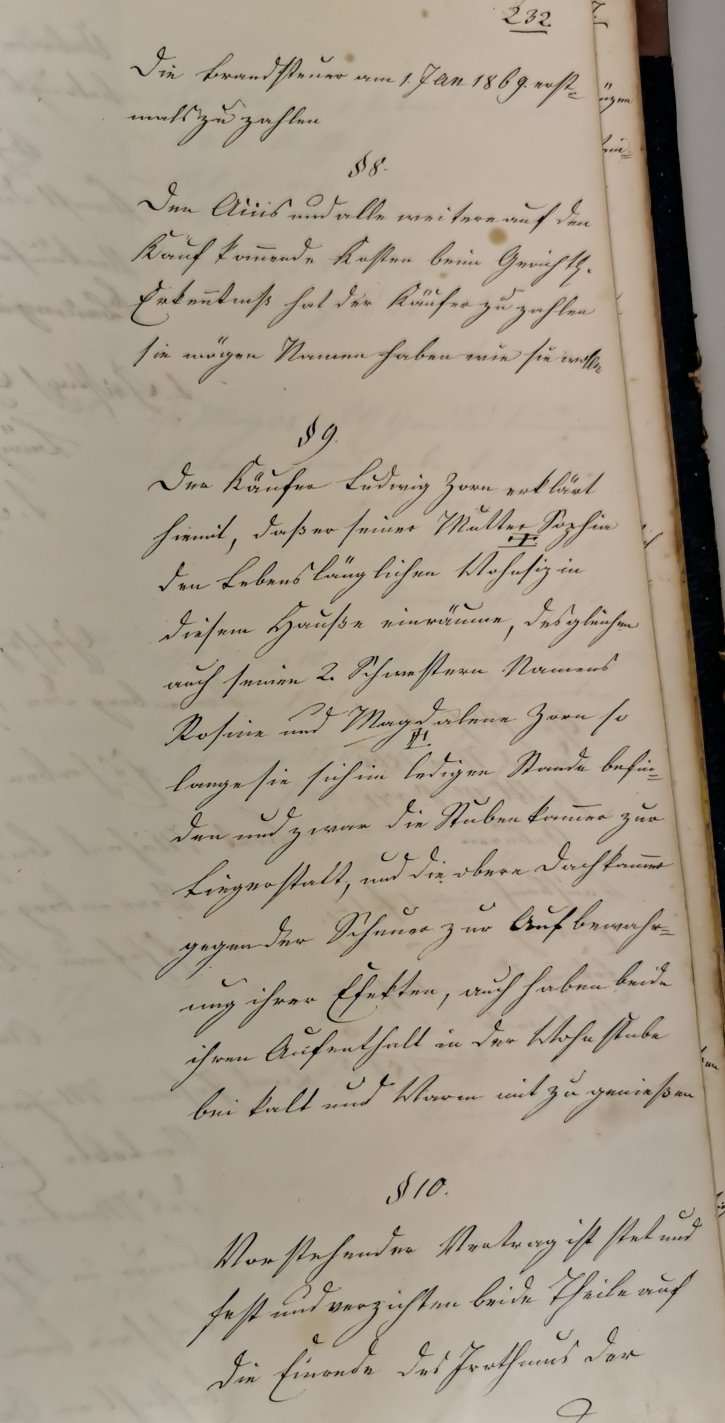 232
Die Brandsteuer am 1. Jan 1869. erst=
mals zu zahlen
§ 8.
Den Accis und alle weitere auf den
Kauf kom̅ende Kosten beim Gerichtl.
Erkenntniß hat der Käufer zu zahlen
sie mögen Namen haben wie sie wolle
§ 9.
Der Käufer Ludwig Zorn erklärt
hiemit, daß er seiner Mutter Sophia
den Lebenslänglichen Wohnsiz in
diesem Hauße einräume, desgleichen
auch seinen 2. Schwestern Namens
Rosine und Magdalena Zorn so
lange sie sich im ledigen Stande befin=
den und zwar die Stubenkam̅er zur
Liegerstatt, und die obere Dachkam̅er
gegen der Scheuer zur Aufbewahr=
ung ihrer Efekten, auch haben beide
ihren Aufenthalt in der Wohnstube
bei kalt und Warm mit zu genießen
§ 10.
Vorstehender Vertrag ist stet und
fest und verzichten beide Theile auf
die Einrede des Irrthums der